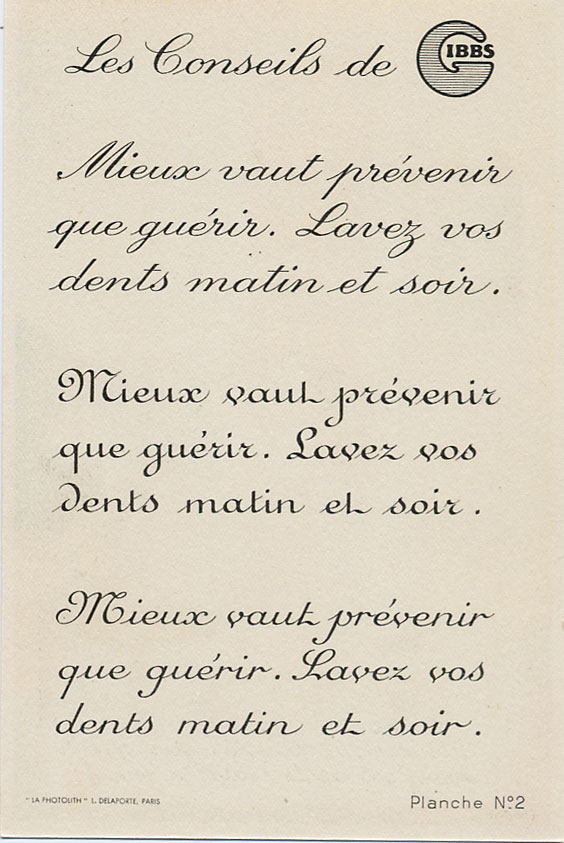 Les Conseils de GIBBS
Mieux vaut prévenir
que guérir. Lavez vos
dents matin et soir.
Mieux vaut prévenir
que guérir. Lavez vos
dents matin et soir.
Mieux vaut prévenir
que guérir. Lavez vos
dents matin et soir.
" LA PHOTOLITH " L. DELAPORTE, PARIS
Planche Nº2